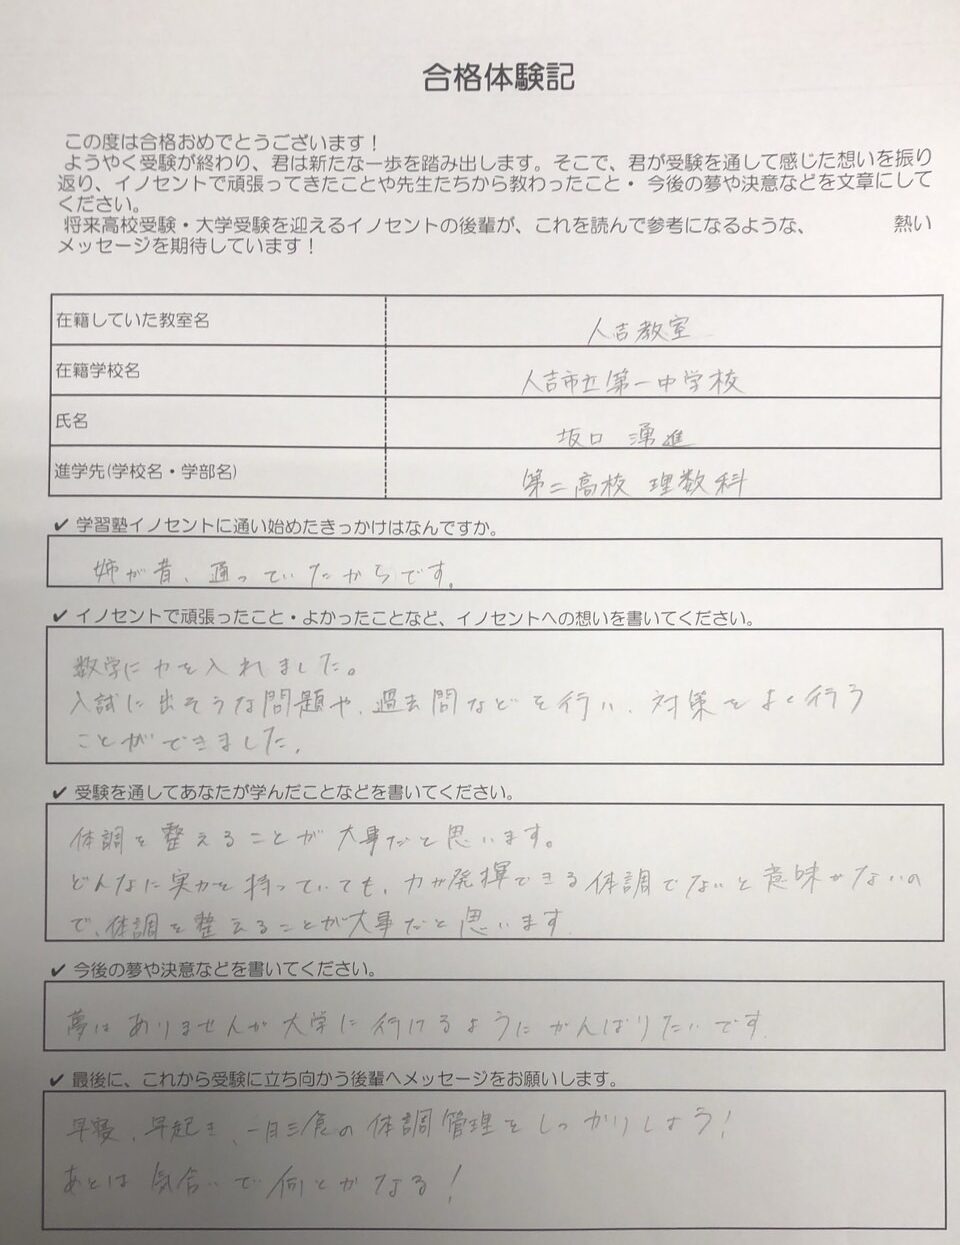 合格体験記
この度は合格おめでとうございます！
ようやく受験が終わり、君は新たな一歩を踏み出します。そこで、君が受験を通して感じた想いを振り
返り、イノセントで頑張ってきたことや先生たちから教わったこと・ 今後の夢や決意などを文章にして
ください。
将来高校受験・大学受験を迎えるイノセントの後輩が、これを読んで参考になるような、 熱い
メッセージを期待しています！
在籍していた教室名 人吉教室
在籍学校名 人吉市立第一中学校
氏名 坂口 湧進
進学先(学校名・学部名) 第二高校 理数科
✔ 学習塾イノセントに通い始めたきっかけはなんですか。
姉が昔、通っていたからです。
✔ イノセントで頑張ったこと・よかったことなど、イノセントへの想いを書いてください。
数学に力を入れました。
入試に出そうな問題や、過去問などを行い、対策をよく行う
ことができました。
✔ 受験を通してあなたが学んだことなどを書いてください。
体調を整えることが大事だと思います。
どんなに実力を持っていても、力が発揮できる体調でないと意味がないの
で、体調を整えることが大事だと思います
✔ 今後の夢や決意などを書いてください。
夢はありませんが大学に行けるようにがんばりたいです
✔ 最後に、これから受験に立ち向かう後輩へメッセージをお願いします。
早寝、早起き、一日三食の体調管理をしっかりしよう！
あとは気合いで何とかなる！